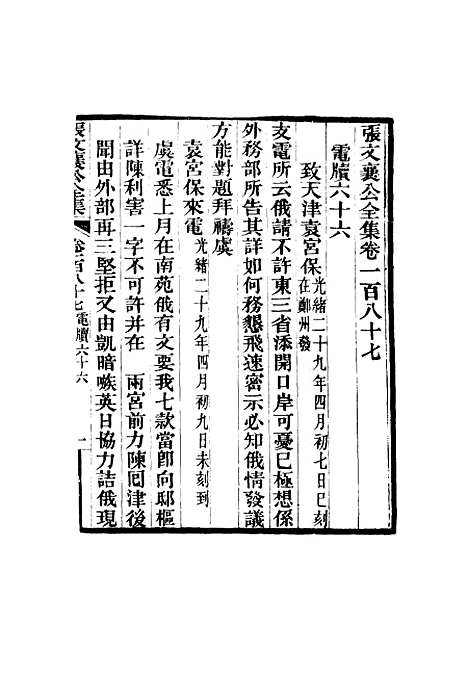 張文襄公全集卷一百八十七
電牘六十六
致天津袁宮保光緒二十九年四月初七日巳刻在鄭州發
支電所云俄請不許東三省添開口岸可憂已極想係
外務部所告其詳如何務懇飛速密示必知俄情發議
方能對題拜禱虞
袁宮保來電光緒二十九年四月初九日未刻到
虞電悉上月在南苑俄有文要我七款當卽向邸樞
詳陳利害一字不可許并在 兩宮前力陳囘津後
聞由外部再三堅拒又由凱暗嗾英日協力詰俄現
張文襄公全集 卷一百八十七 電牘六十六 一